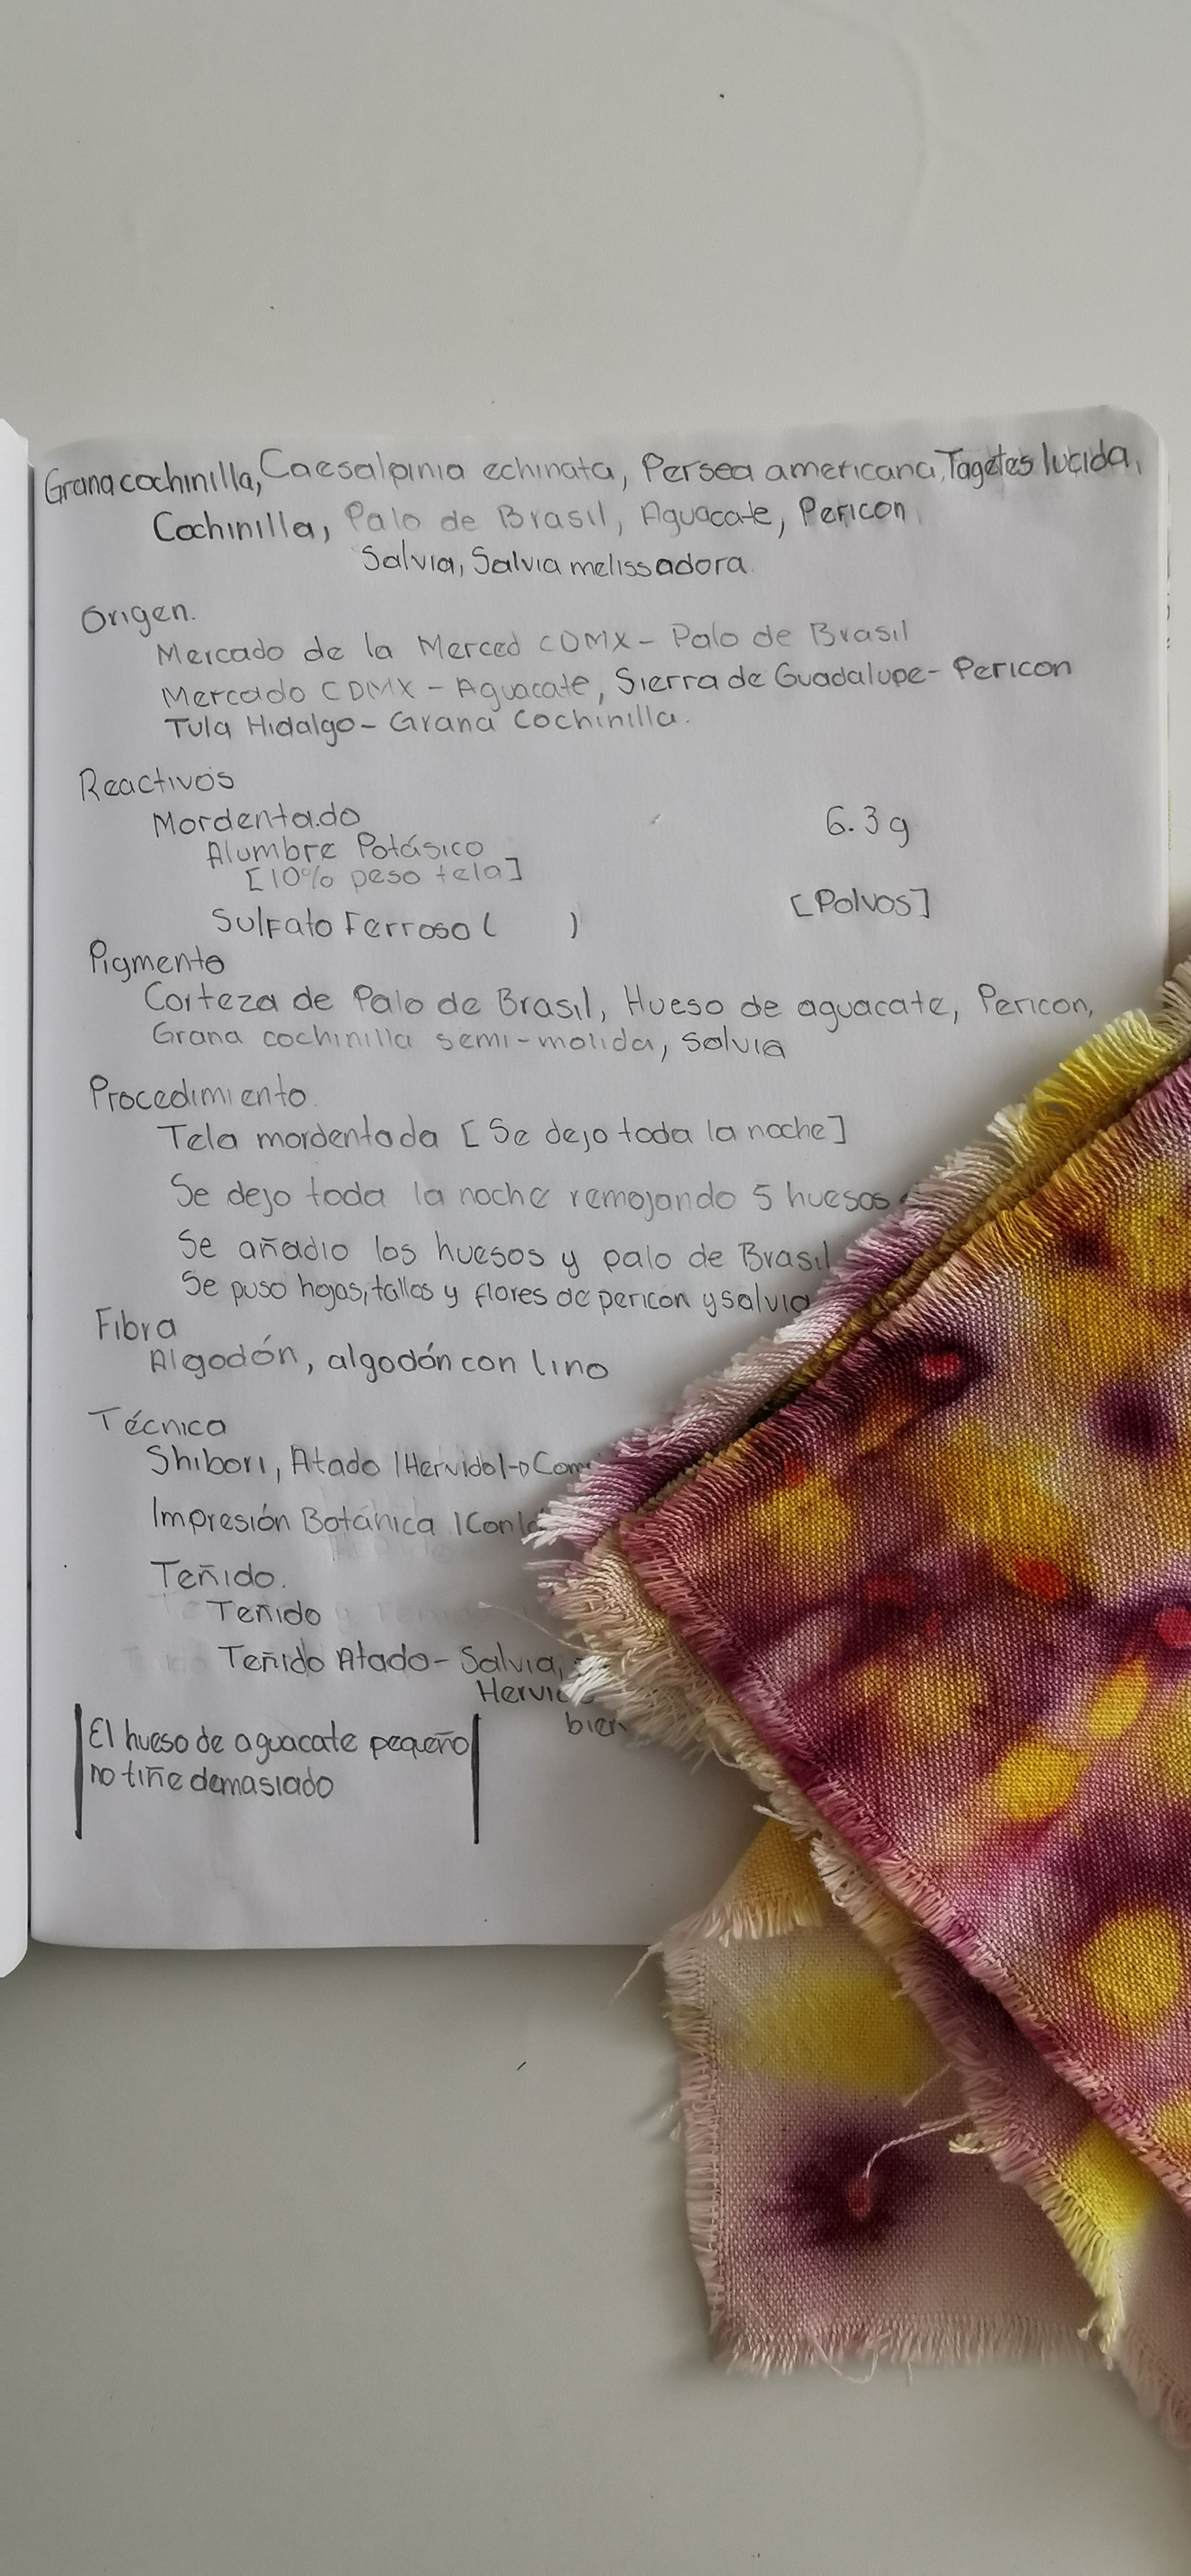 Grana cochinilla, Caesalpinia echinata, Persea americana, Tagetes lucida,
Cochinilla, Palo de Brasil, Aguacate, Pericon
Salvia, Salvia melissadora.
Origen.
Mercado de la Merced CDMX - Palo de Brasil
Mercado CDMX - Aguacate, Sierra de Guadalupe - Pericon
Tula Hidalgo - Grana Cochinilla.
Reactivos
Mordentado 6.3 g
Alumbre Potásico
[10% peso tela]
Sulfato Ferroso ( ) [Polvos]
Pigmento
Corteza de Palo de Brasil, Hueso de aguacate, Pericon,
Grana cochinilla semi-molida, Salvia
Procedimiento.
Tela mordentada [Se dejo toda la noche]
Se dejo toda la noche remojando 5 huesos
Se añadio los huesos y palo de Brasil
Se puso hojas, tallos y flores de pericon y salvia
Fibra
Algodón, algodón con lino
Técnica
Shibori, Atado |Hervido|→
Impresión Botánica
Teñido.
Teñido
Teñido Atado - Salvia,
bien
El hueso de aguacate pequeño
no tiñe demasiado